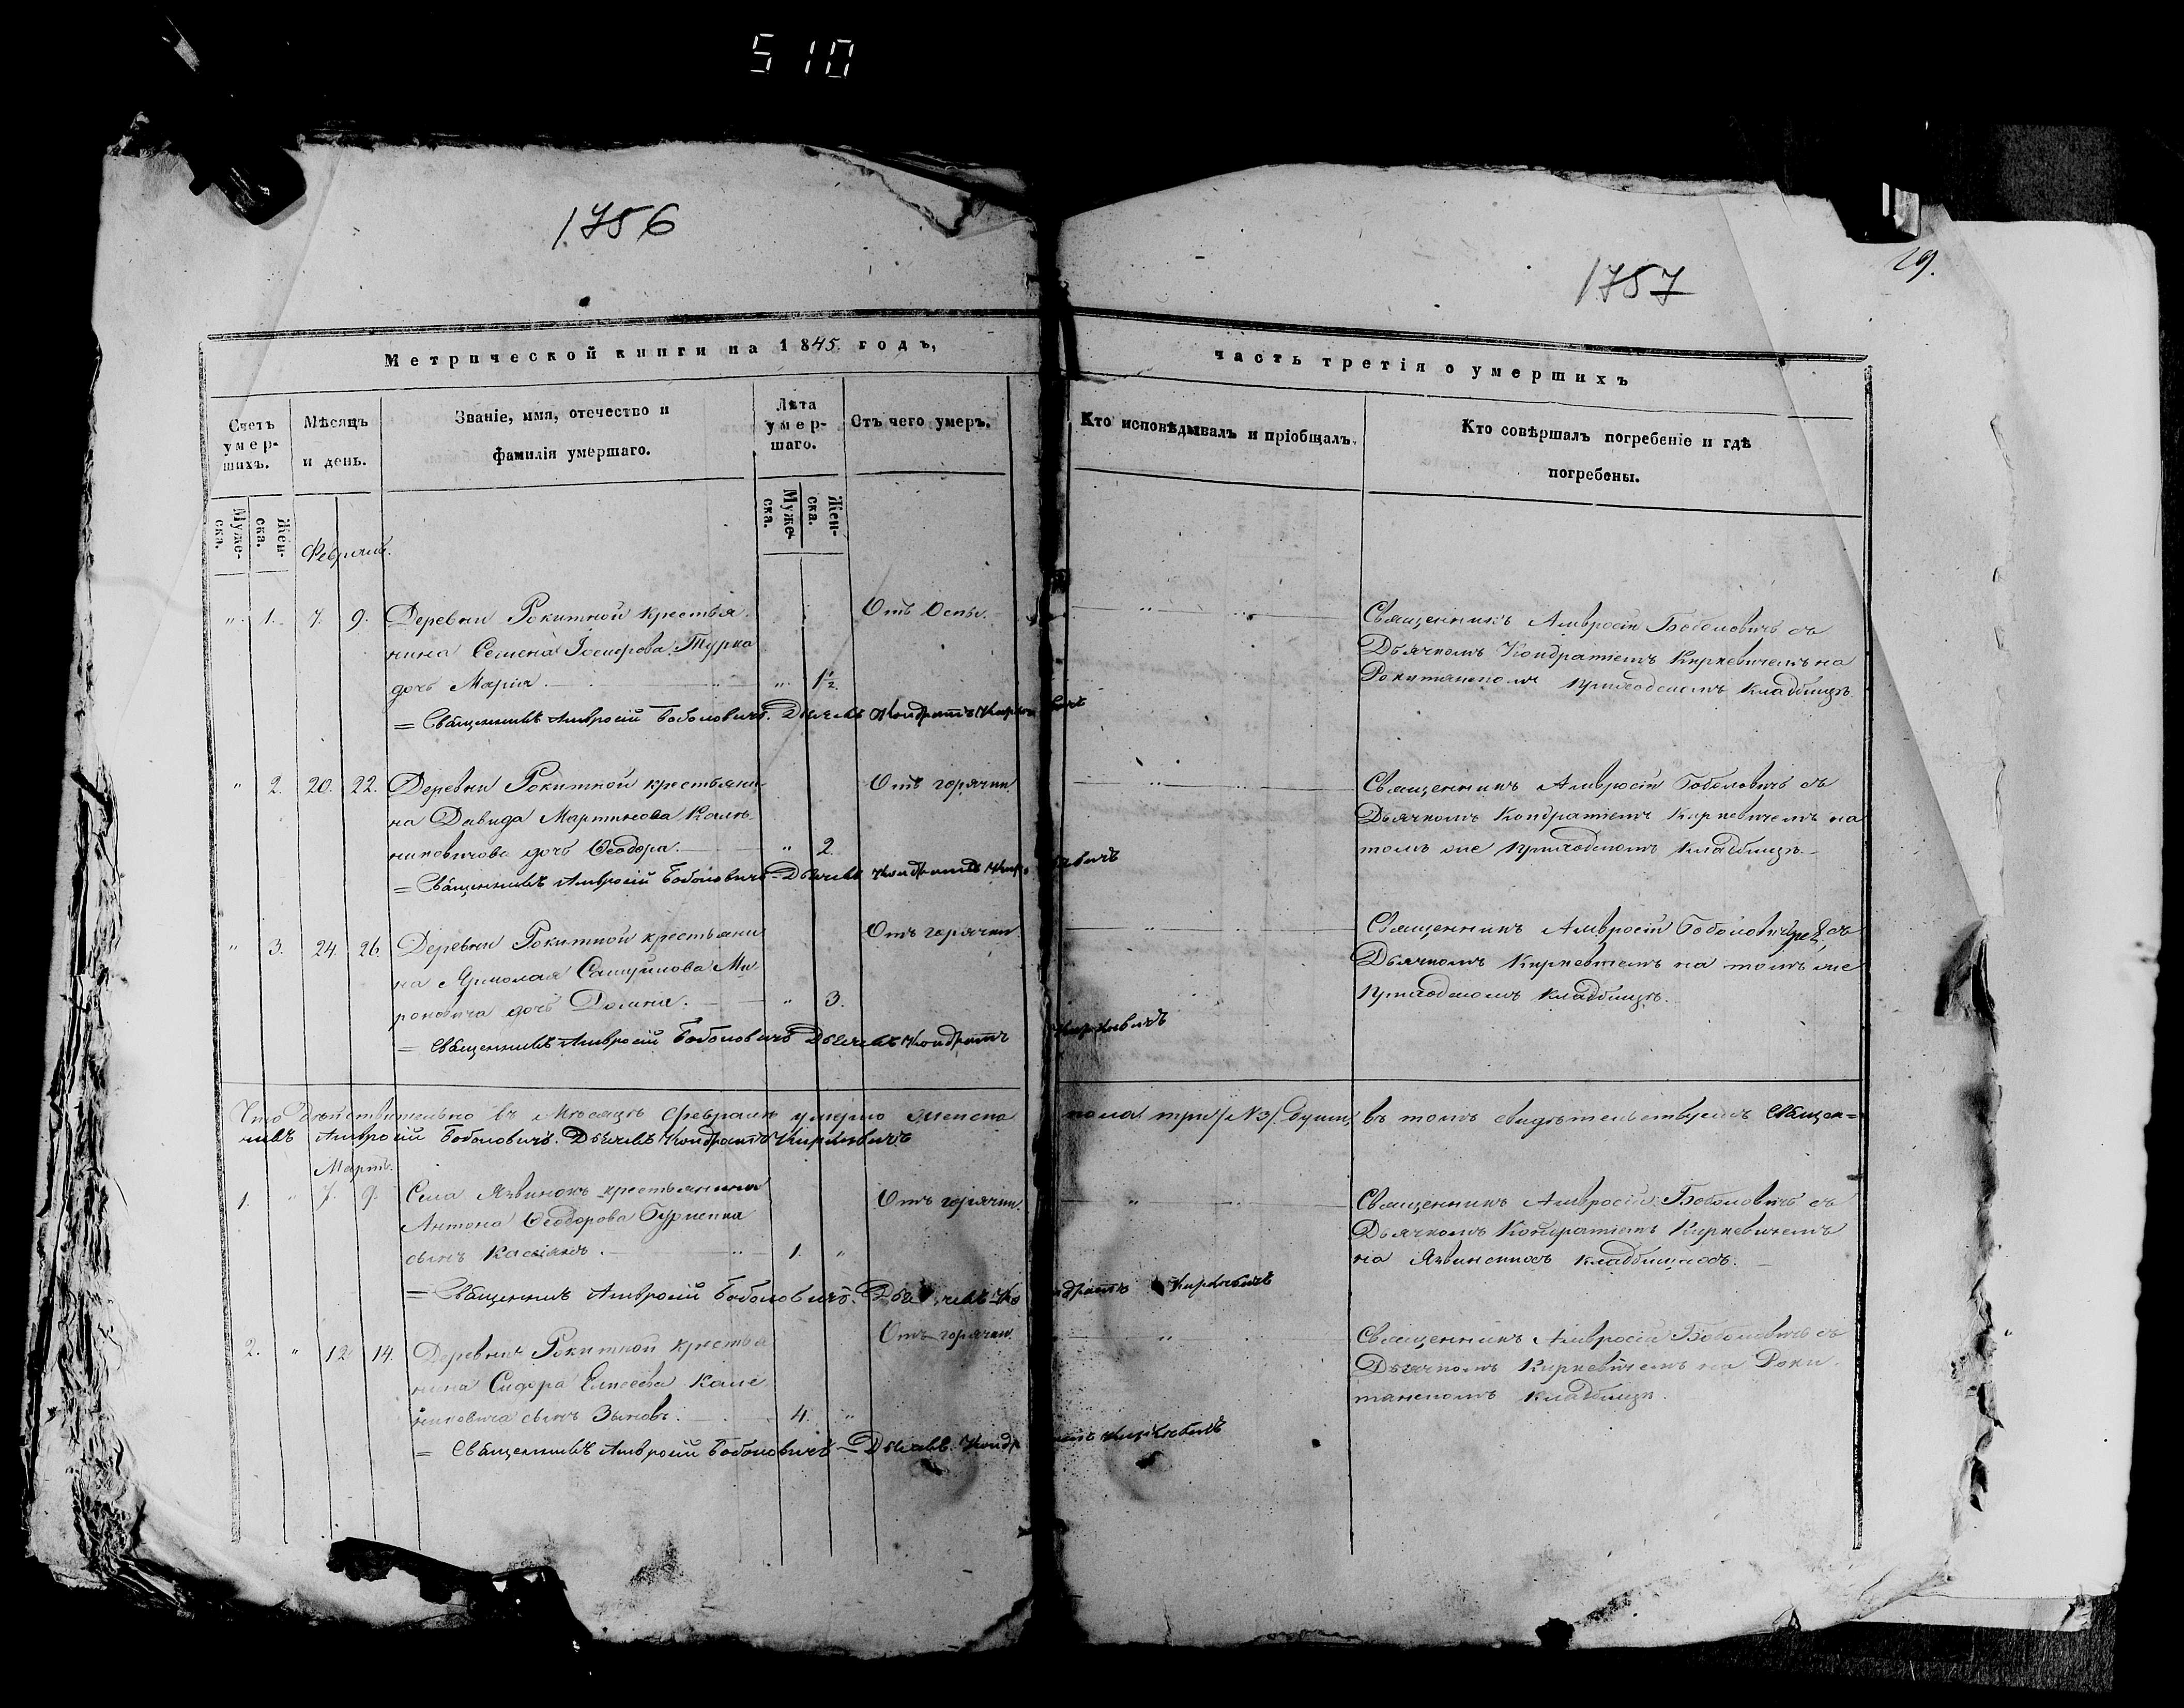 510
1756
1757
29.
Метрической книги на 1845 годъ,
часть третія о умершихъ
Счетъ умер-шихъ.
Мѣсяцъ и день.
Званіе, имя, отечество и фамилія умершаго.
Лѣта умер-шаго.
Отъ чего умеръ.
Кто исповѣдывалъ и пріобщалъ.
Кто совѣршалъ погребеніе и гдѣ погребены.
Муже-ска.
Жен-ска.
Муже-ска.
Жен-ска.
Февраль.
" 1. 7. 9. Деревни Рокитной крестья-
нина Семена Іосифова Турка
дочь Марія. " 1½.
Отъ Оспы.
Священникъ Амвросій Боболовичъ съ
Дьячкомъ Кондратіемъ Киркевичемъ на
Рокитянскомъ приходскомъ кладбищѣ.
= Священникъ Амвросій Боболовичъ. Дьячекъ Кондратъ Киркевичъ
" 2. 20. 22. Деревни Рокитной крестьяни-
на Давида Мартинова Кале-
никовичова дочь Ѳеодора. " 2.
Отъ горячки
Священникъ Амвросій Боболовичъ съ
Дьячкомъ Кондратіемъ Киркевичемъ на
томъ же приходскомъ кладбищѣ.
= Священникъ Амвросій Боболовичъ = Дьячекъ Кондратъ Киркевичъ
" 3. 24. 26. Деревни Рокитной крестьяни-
на Ярмолая Самуйлова Ми-
роновича дочь Домна. " 3.
Отъ горячки
Священникъ Амвросій Боболовичъ съ
Дьячкомъ Киркевичемъ на томъ же
приходскомъ кладбищѣ.
= Священникъ Амвросій Боболовичъ Дьячекъ Кондратъ Киркевичъ
Что дѣйствительно въ Мѣсяцѣ Февралѣ умерло женска пола три /№3/ души, въ томъ свидѣтельствуемъ Священ=
никъ Амвросій Боболовичъ. Дьячекъ Кондратъ Киркевичъ
Мартъ.
1. " 7. 9. Села Язвинокъ крестьянина
Антона Ѳеодорова Бурменка
сынъ Касіянъ. 1. "
Отъ горячки.
Священникъ Амвросій Боболовичъ съ
Дьячкомъ Кондратіемъ Киркевичемъ
на Язвинскихъ кладбищахъ.
= Священникъ Амвросій Боболовичъ. Дьячекъ Кондратъ Киркевичъ
2. " 12 14. Деревни Рокитной крестья-
нина Сидора Елисеева Кале-
никовича сынъ Зыновъ. 4. "
Отъ горячки.
Священникъ Амвросій Боболовичъ съ
Дьячкомъ Киркевичемъ на Роки-
тянскомъ кладбищѣ.
= Священникъ Амвросій Боболовичъ = Дьячекъ. Кондратъ Киркевичъ